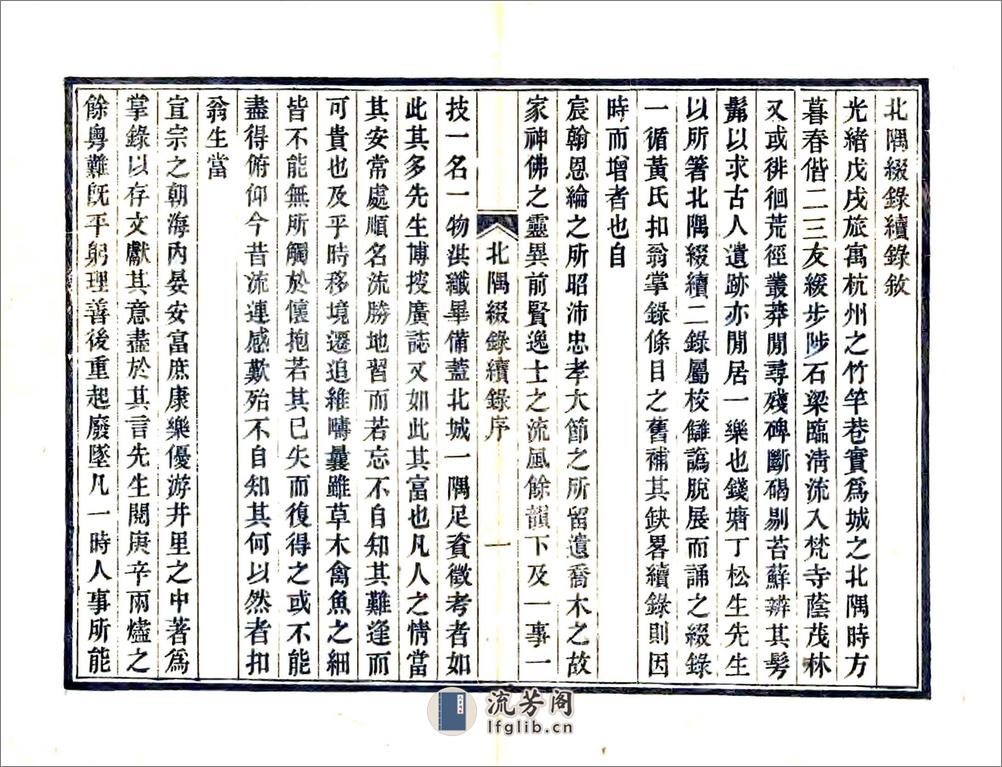 北隅綴錄續錄敘
光緒戊戌旅寓杭州之竹竿巷實爲城之北隅時方
暮春偕二三友緩步陟石梁臨清流入梵寺蔭茂林
又或徘徊荒徑叢莽閒尋殘碑斷碣剔苔蘚辨其髣
髴以求古人遺跡亦閒居一樂也錢塘丁松生先生
以所箸北隅綴續二錄屬校讎譌脫展而誦之綴錄
一循黃氏扣翁掌錄條目之舊補其缺畧續錄則因
時而增者也自
宸翰恩綸之所昭沛忠孝大節之所留遺喬木之故
家神佛之靈異前賢逸士之流風餘韻下及一事一
北隅綴錄續錄序
一
技一名一物洪纖畢備蓋北城一隅足資徵考者如
此其多先生博搜廣誌又如此其富也凡人之情當
其安常處順名流勝地習而若忘不自知其難逢而
可貴也及乎時移境遷追維疇曩雖草木禽魚之細
皆不能無所觸於懷抱若其已失而復得之或不能
盡得俯仰今昔流連感歎殆不自知其何以然者扣
翁生當
宣宗之朝海內晏安富庶康樂優游井里之中著爲
掌錄以存文獻其意盡於其言先生閱庚辛兩燼之
餘粵難旣平躬理善後重起廢墜凡一時人事所能
流芳阁
lfglib.cn